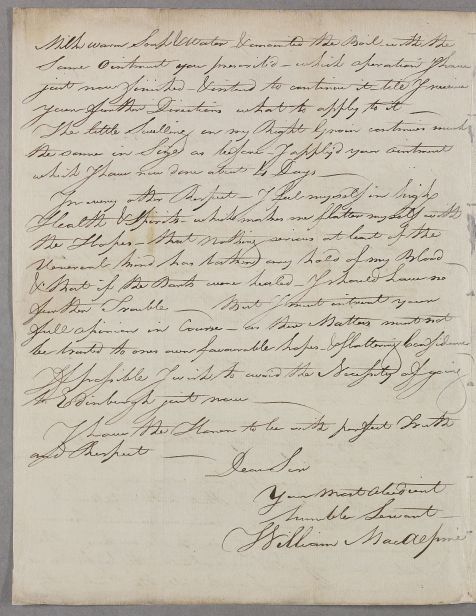 Milk warm Soap & Water & anointed the Boil with the
Same Ointment you prescribed – which operation I have
just now finished – & intend to continue it till I receive
your further Directions what to apply to it –
The little Swelling on my Right Groin continues much
the same in Size as before I applyd your ointment
which I have now done about 10 Days –
In every other Respect – I feel myself in high
Health & Spirits – which makes me flatter myself with
the Hopes – that nothing serious at least of the
Venereal kind has taken any hold of my Blood –
& that if the were healed – I should have no
further Trouble – But I must intreat your
full opinion in Course – as these Matters must not
be trusted to ones own favourable hopes & flattering Confidence
If possible I wish to avoid the Necessity of going
to Edinburgh just now –
I have the Honor to be with perfect Truth
and Respect –
Dear Sir
Your Most obedient
humble Servant
William MacAlpine